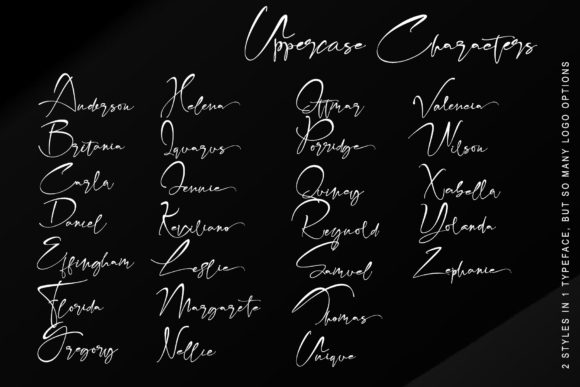 Uppercase Characters
Anderson
Britania
Carla
Daniel
Effingham
Florida
Gregory
Helena
Iquarus
Jennie
Keiciliano
Leslie
Margarete
Nellie
Ottmar
Porridge
Quincy
Reynold
Samuel
Thomas
Unique
Valencia
Wilson
Xabella
Yolanda
Zephanie
2 STYLES IN 1 TYPEFACE, BUT SO MANY LOGO OPTIONS